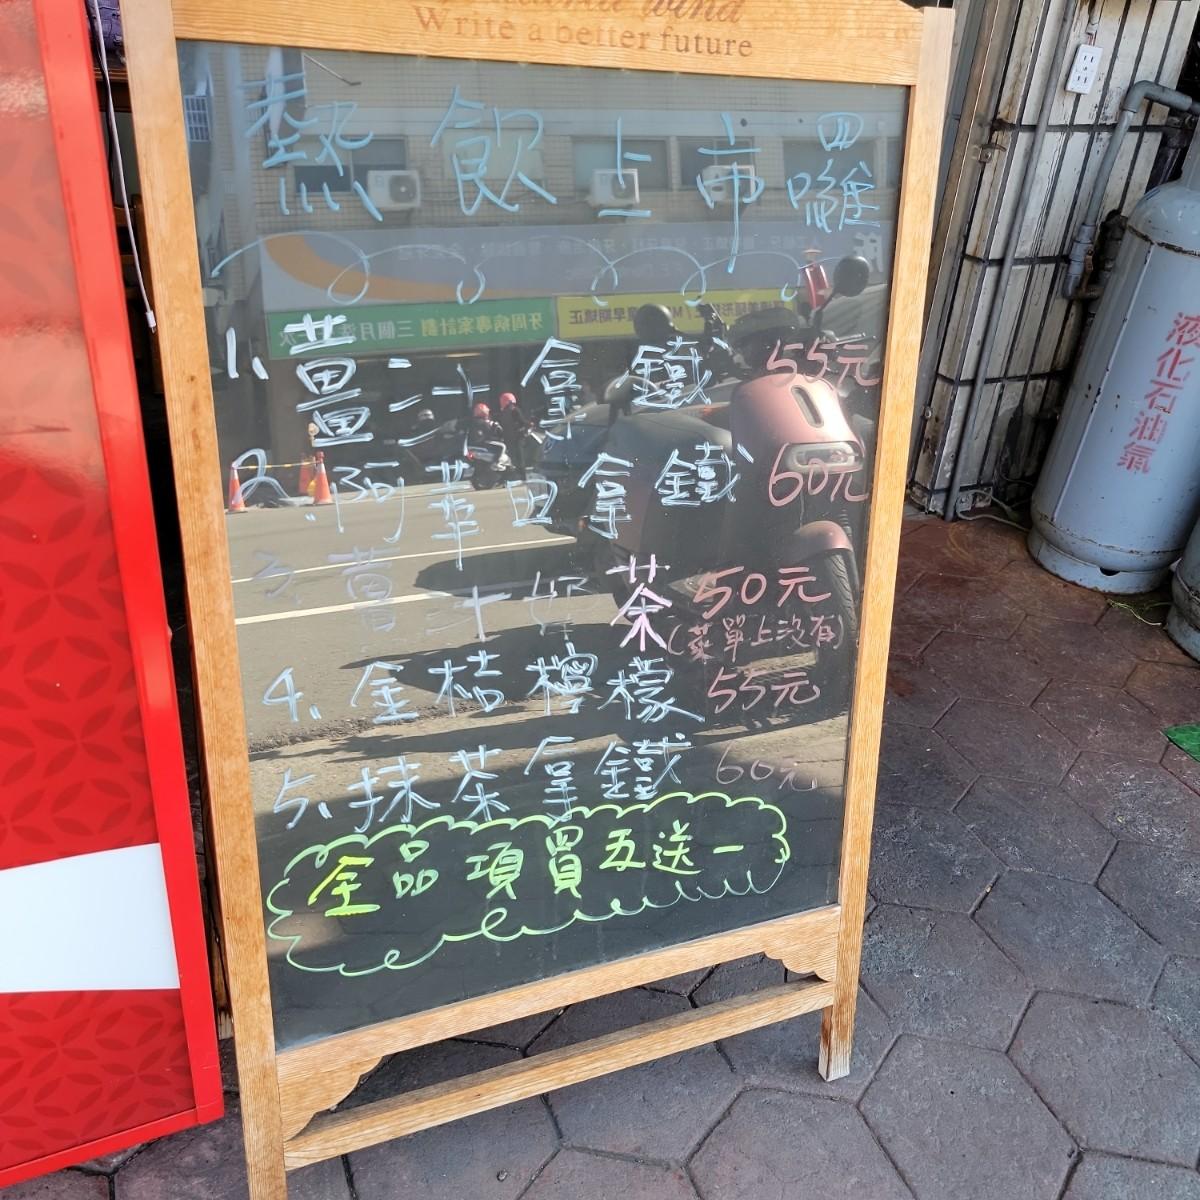 Write a better future
熱飲上市囉
1. 薑汁拿鐵 55元
2. 阿華田拿鐵 60元
3. 薑汁奶茶 50元
(菜單上沒有)
4. 金桔檸檬 55元
5. 抹茶拿鐵 60元
全品項買五送一
液化石油氣